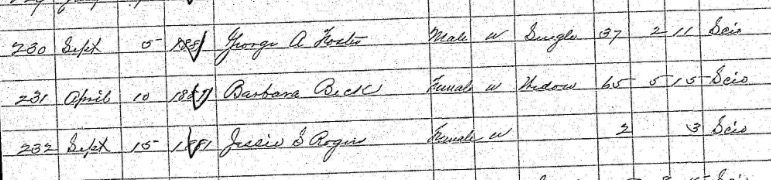 230 Sept 5 1881 George A Foster Male W Single 37 2 11 Scio
231 April 10 1881 Barbara Beck Female W Widow 65 5 15 Scio
232 Sept 15 1881 Jessie S Roger Female W 2 3 Scio